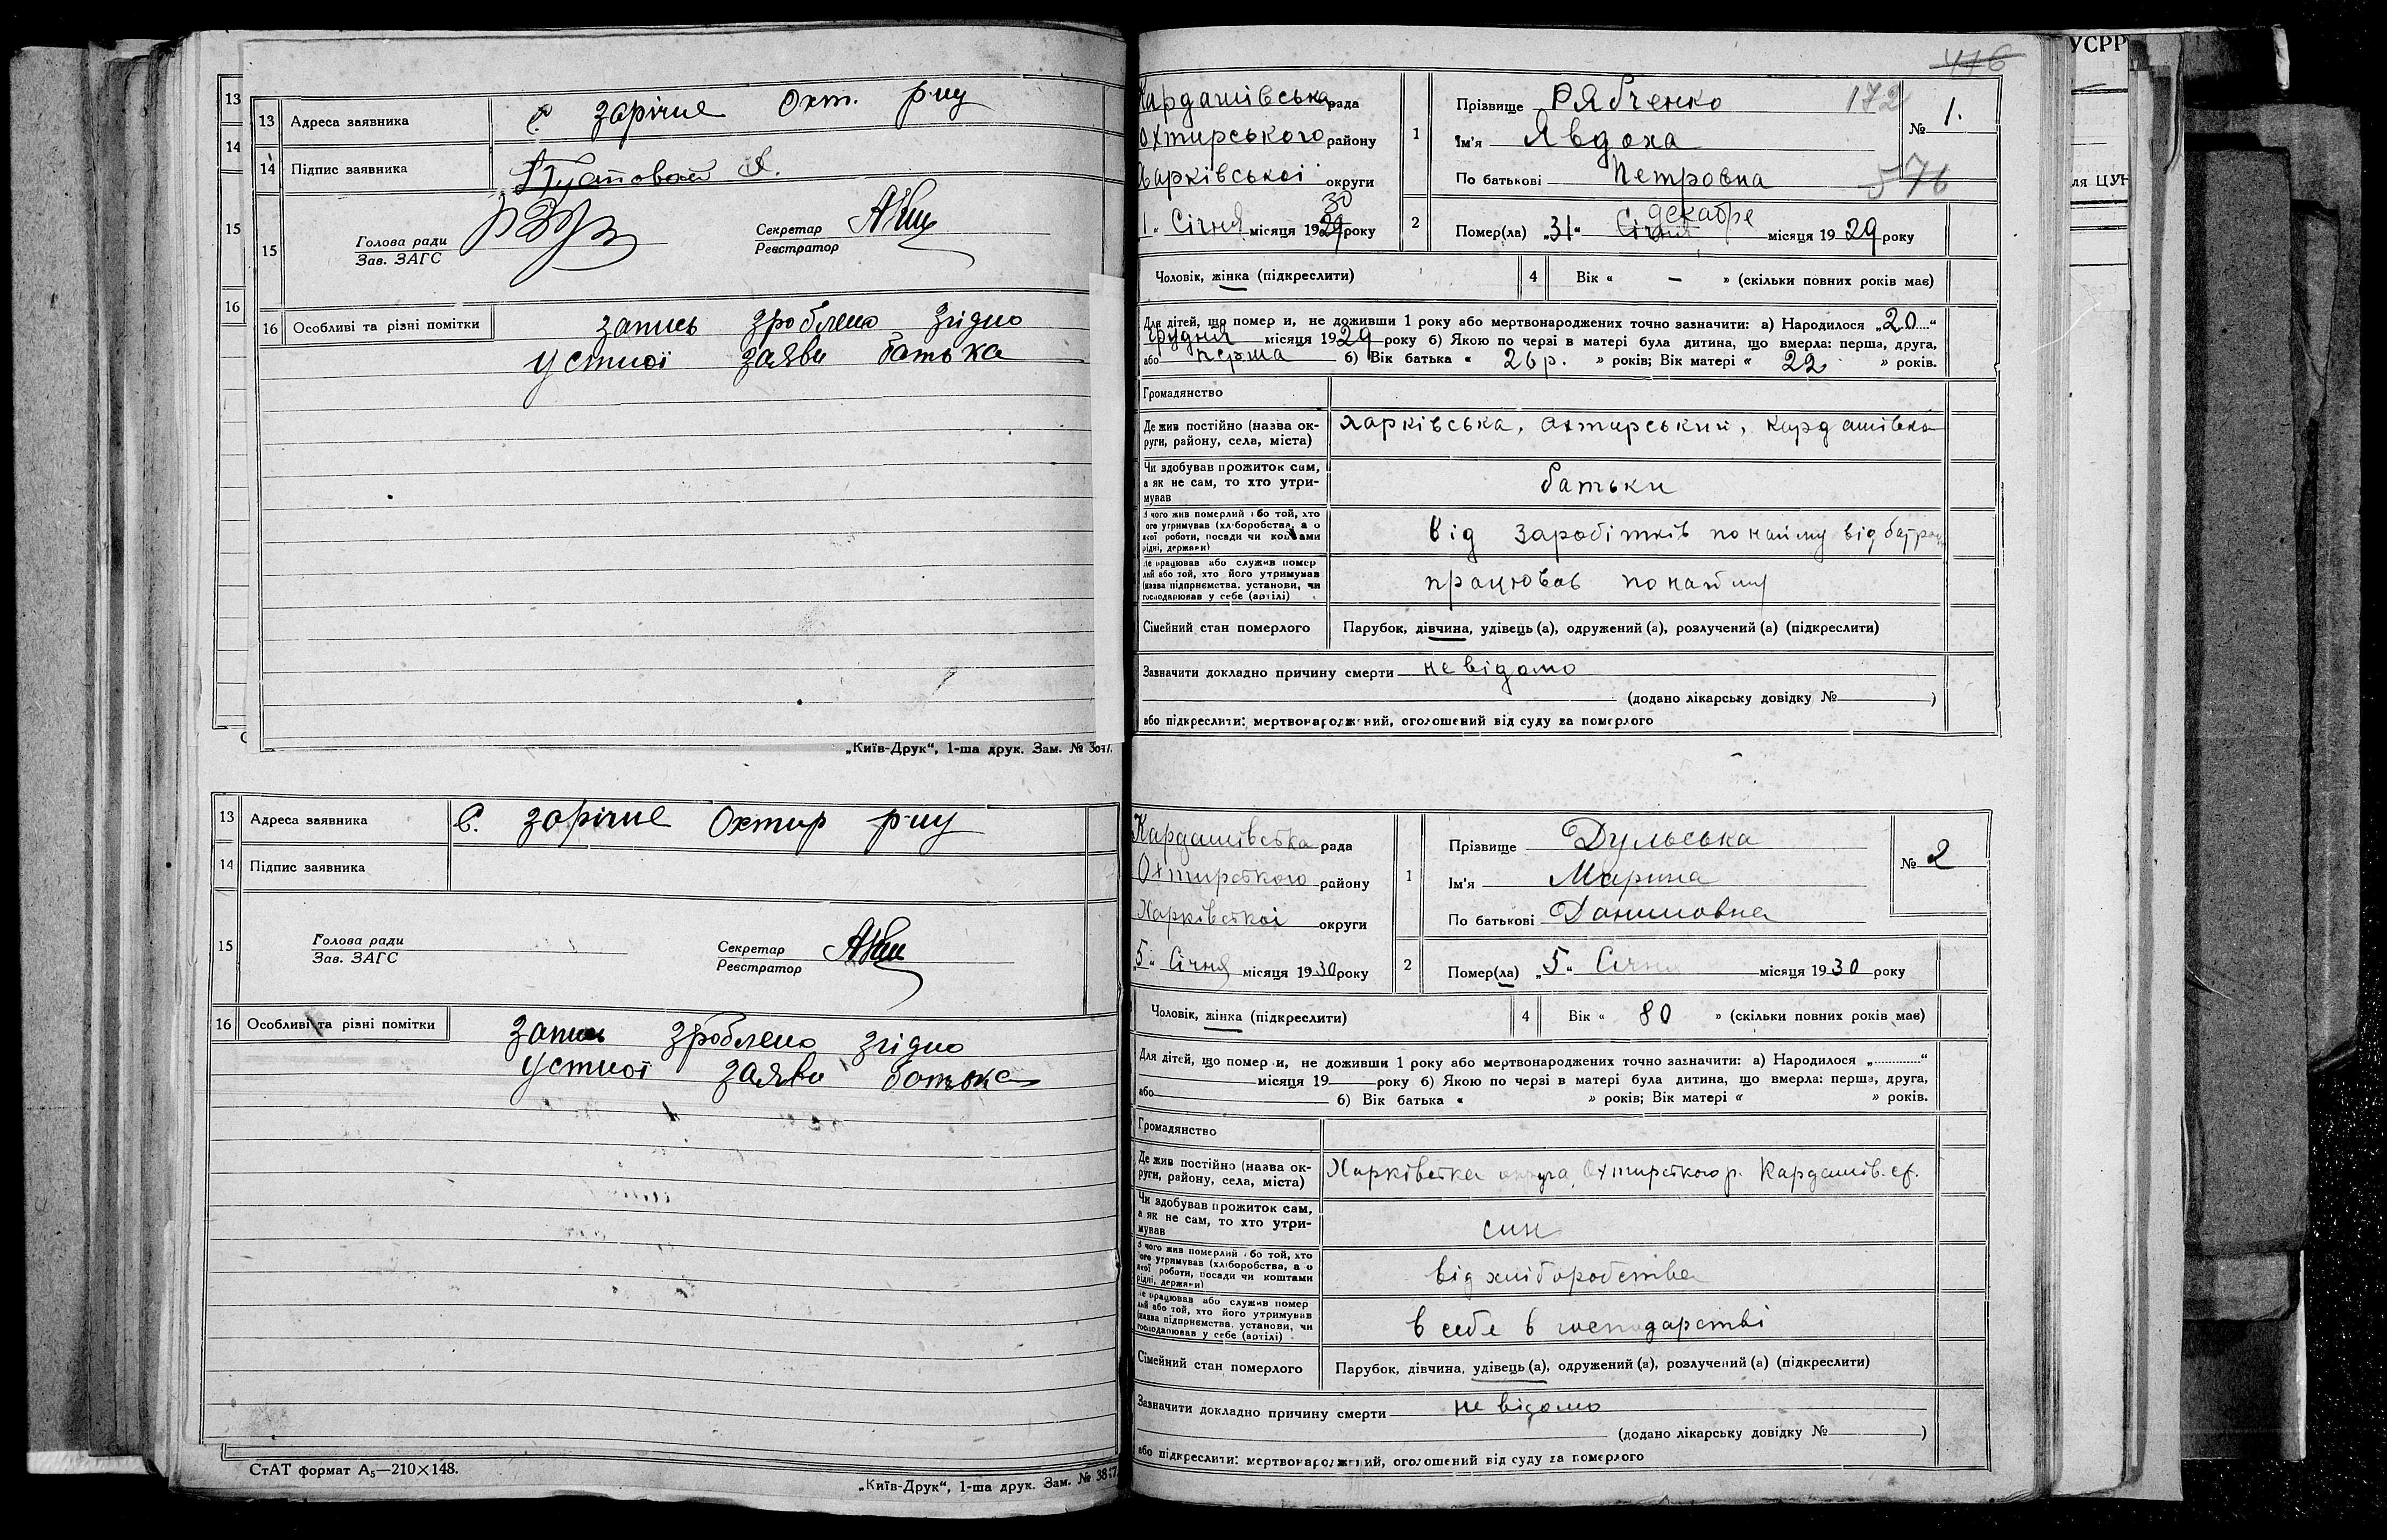 13
14
15
16
13 Адреса заявника с. зарічне Охт. р-ну
14 Підпис заявника
15 Голова ради
Зав. ЗАГС
Секретар
Реєстратор
16 Особливі та різні помітки запись зроблено згідно
устної заяви батька
„Київ-Друк“, 1-ша друк. Зам. №
13 Адреса заявника с. зарічне Охтир р-ну
14 Підпис заявника
15 Голова ради
Зав. ЗАГС
Секретар
Реєстратор
16 Особливі та різні помітки запись зроблено згідно
устної заяви батька
СтАТ формат А₅—210×148.
„Київ-Друк“, 1-ша друк. Зам. №
416
Кардашівська рада
Охтирського району
Харківської округи
30
1 „ Січня місяця 1929 року
1 Прізвище Рябченко 172
Ім'я Явдоха
По батькові Петровна 576
№ 1.
2 Помер(ла) „31“ Січня декабре місяця 1929 року
Чоловік, жінка (підкреслити) 4 Вік « — » (скільки повних років має)
Для дітей, що помер и, не доживши 1 року або мертвонароджених точно зазначити: а) Народилося „20“
грудня місяця 1929 року б) Якою по черзі в матері була дитина, що вмерла: перша, друга,
або перша б) Вік батька « 26 р. » років; Вік матері « 22 » років.
Громадянство
Де жив постійно (назва ок-
руги, району, села, міста) Харківська, Охтирський, Кардашівка
Чи здобував прожиток сам,
а як не сам, то хто утри-
мував батьки
З чого жив померлий або той, хто
його утримував (хліборобства, а о
якої роботи, посади чи коштами
рідні, держави) від заробітків по найму від
Де працював або служив помер
лий або той, хто його утримував
(назва підприємства, установи, чи
господарював у себе (артілі) працював по найму
Сімейний стан померлого Парубок, дівчина, удівець (а), одружений (а), розлучений (а) (підкреслити)
Зазначити докладно причину смерти не відомо
(додано лікарську довідку № )
або підкреслити: мертвонароджений, оголошений від суду за померлого
Кардашівська рада
Охтирського району
Харківської округи
„5“ Січня місяця 1930 року
1 Прізвище Дульська
Ім'я Марина
По батькові Даниловна
№ 2
2 Помер(ла) „5“ Січня місяця 1930 року
Чоловік, жінка (підкреслити) 4 Вік « 80 » (скільки повних років має)
Для дітей, що помер и, не доживши 1 року або мертвонароджених точно зазначити: а) Народилося „ “
місяця 19 року б) Якою по черзі в матері була дитина, що вмерла: перша, друга,
або б) Вік батька « » років; Вік матері « » років.
Громадянство
Де жив постійно (назва ок-
руги, району, села, міста) Харківська округа, Охтирського р. Кардашів. с/.
Чи здобував прожиток сам,
а як не сам, то хто утри-
мував син
З чого жив померлий або той, хто
його утримував (хліборобства, а о
якої роботи, посади чи коштами
рідні, держави) від хліборобства
Де працював або служив помер
лий або той, хто його утримував
(назва підприємства, установи, чи
господарював у себе (артілі) в себе в господарстві
Сімейний стан померлого Парубок, дівчина, удівець (а), одружений (а), розлучений (а) (підкреслити)
Зазначити докладно причину смерти не відомо
(додано лікарську довідку № )
або підкреслити: мертвонароджений, оголошений від суду за померлого
УСРР